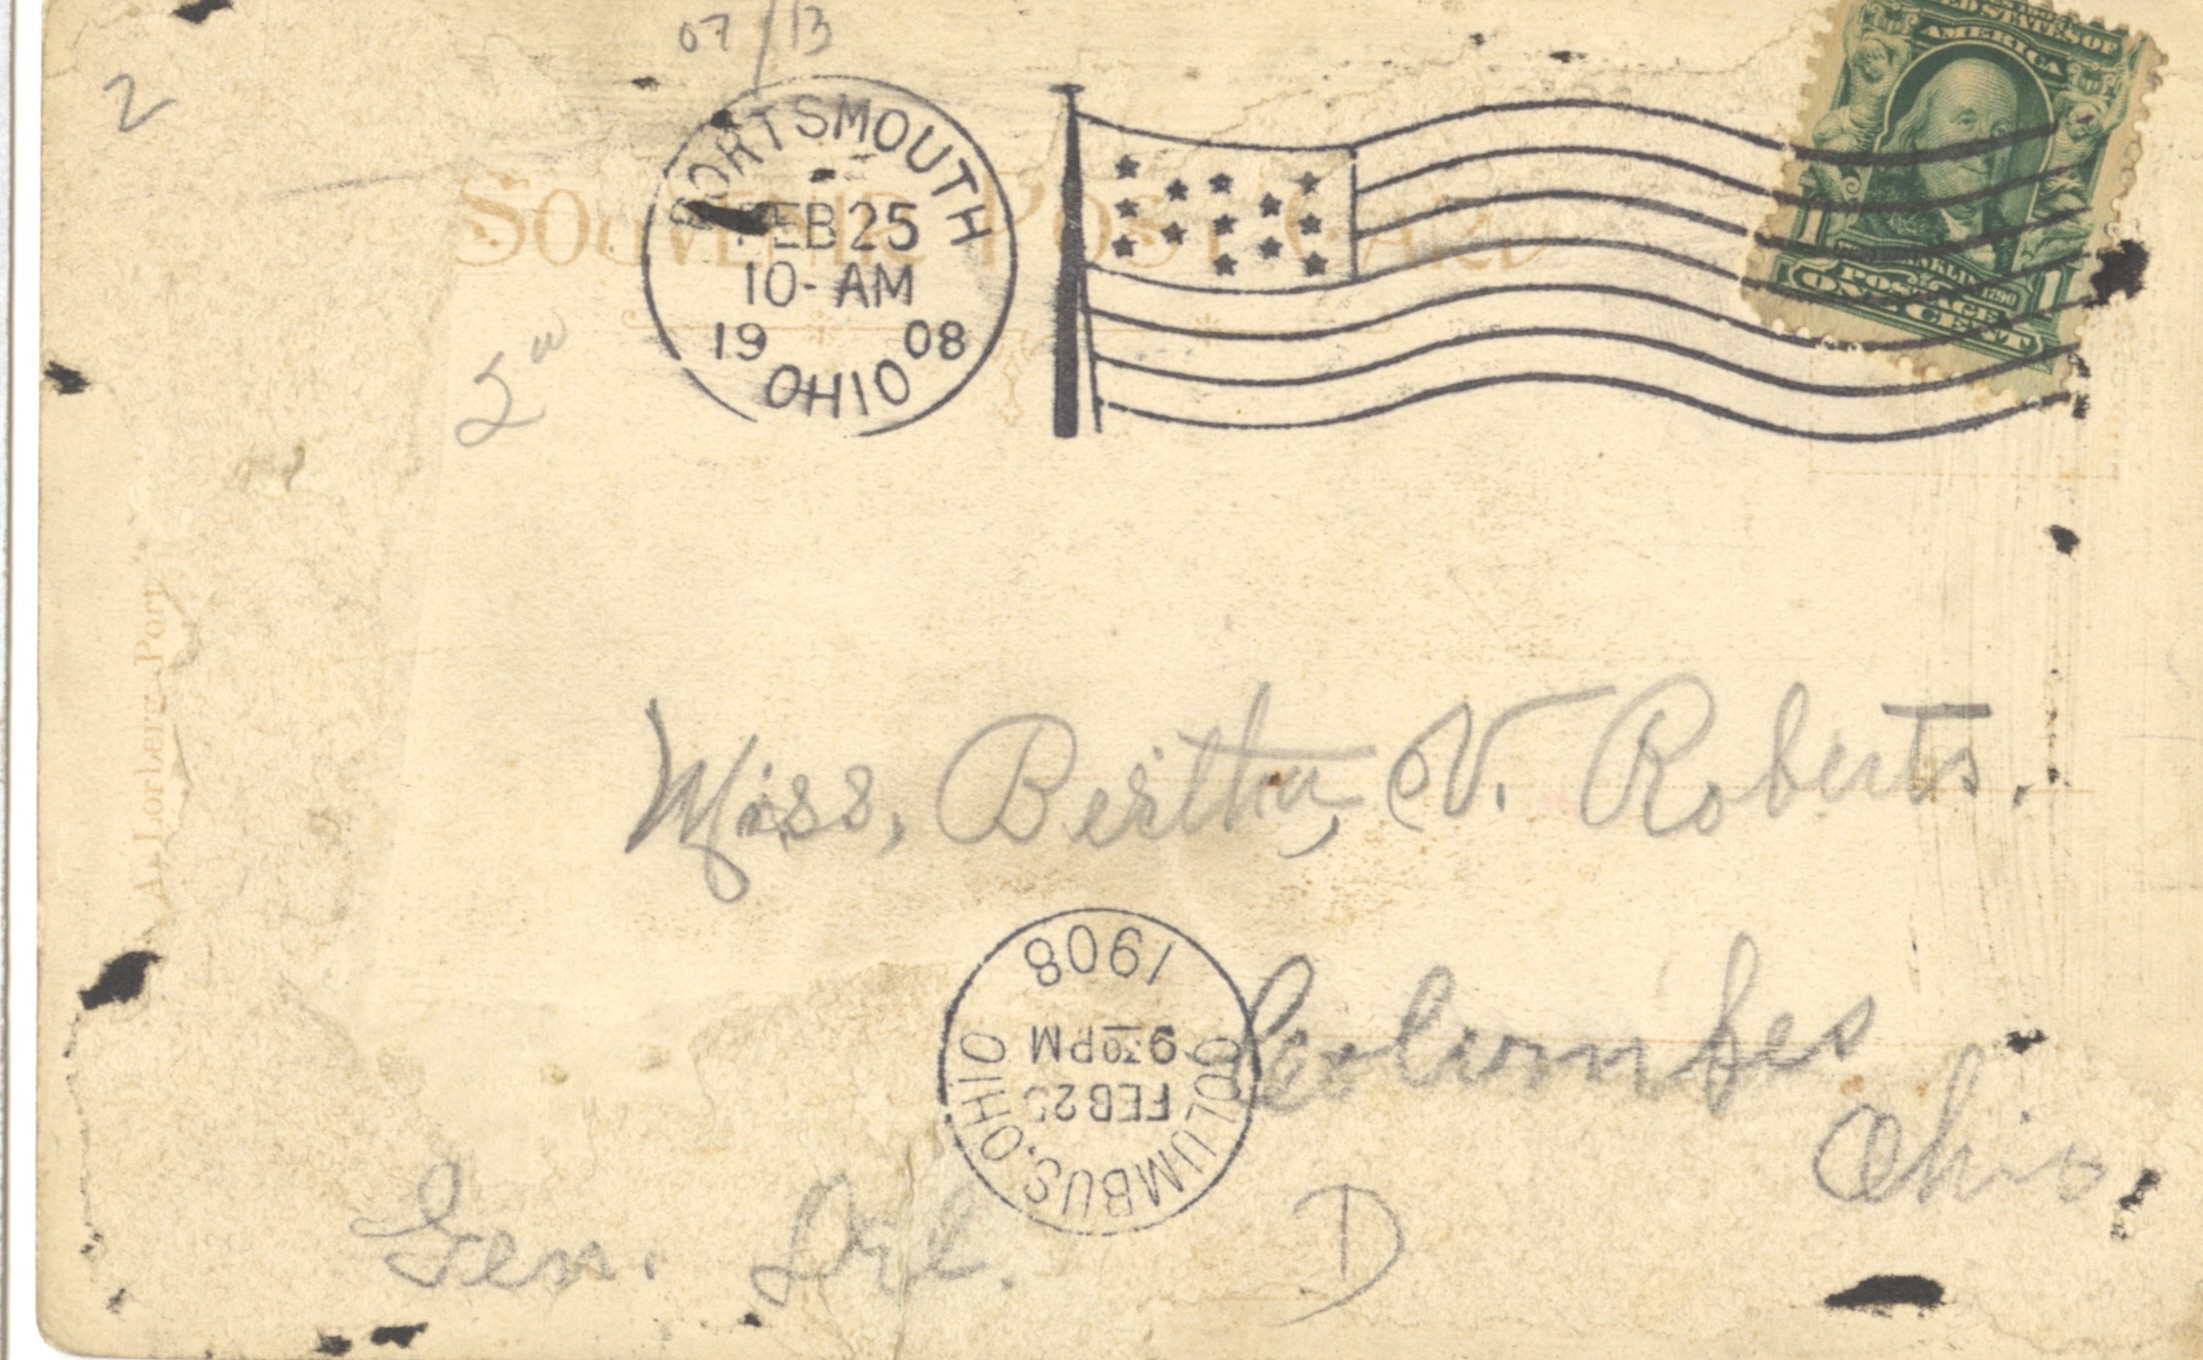 07/13
2
PORTSMOUTH
FEB 25
10-AM
1908
OHIO
UNITED STATES OF
AMERICA
FRANKLIN 1790
POSTAGE
1 ONE CENT 1
SOUVENIR POST CARD
A. Lorberg Port
Miss, Bertha, V. Roberts.
Columbes
Ohio.
1908
9 30 PM
FEB 25
COLUMBUS, OHIO
Gen. Del.
D